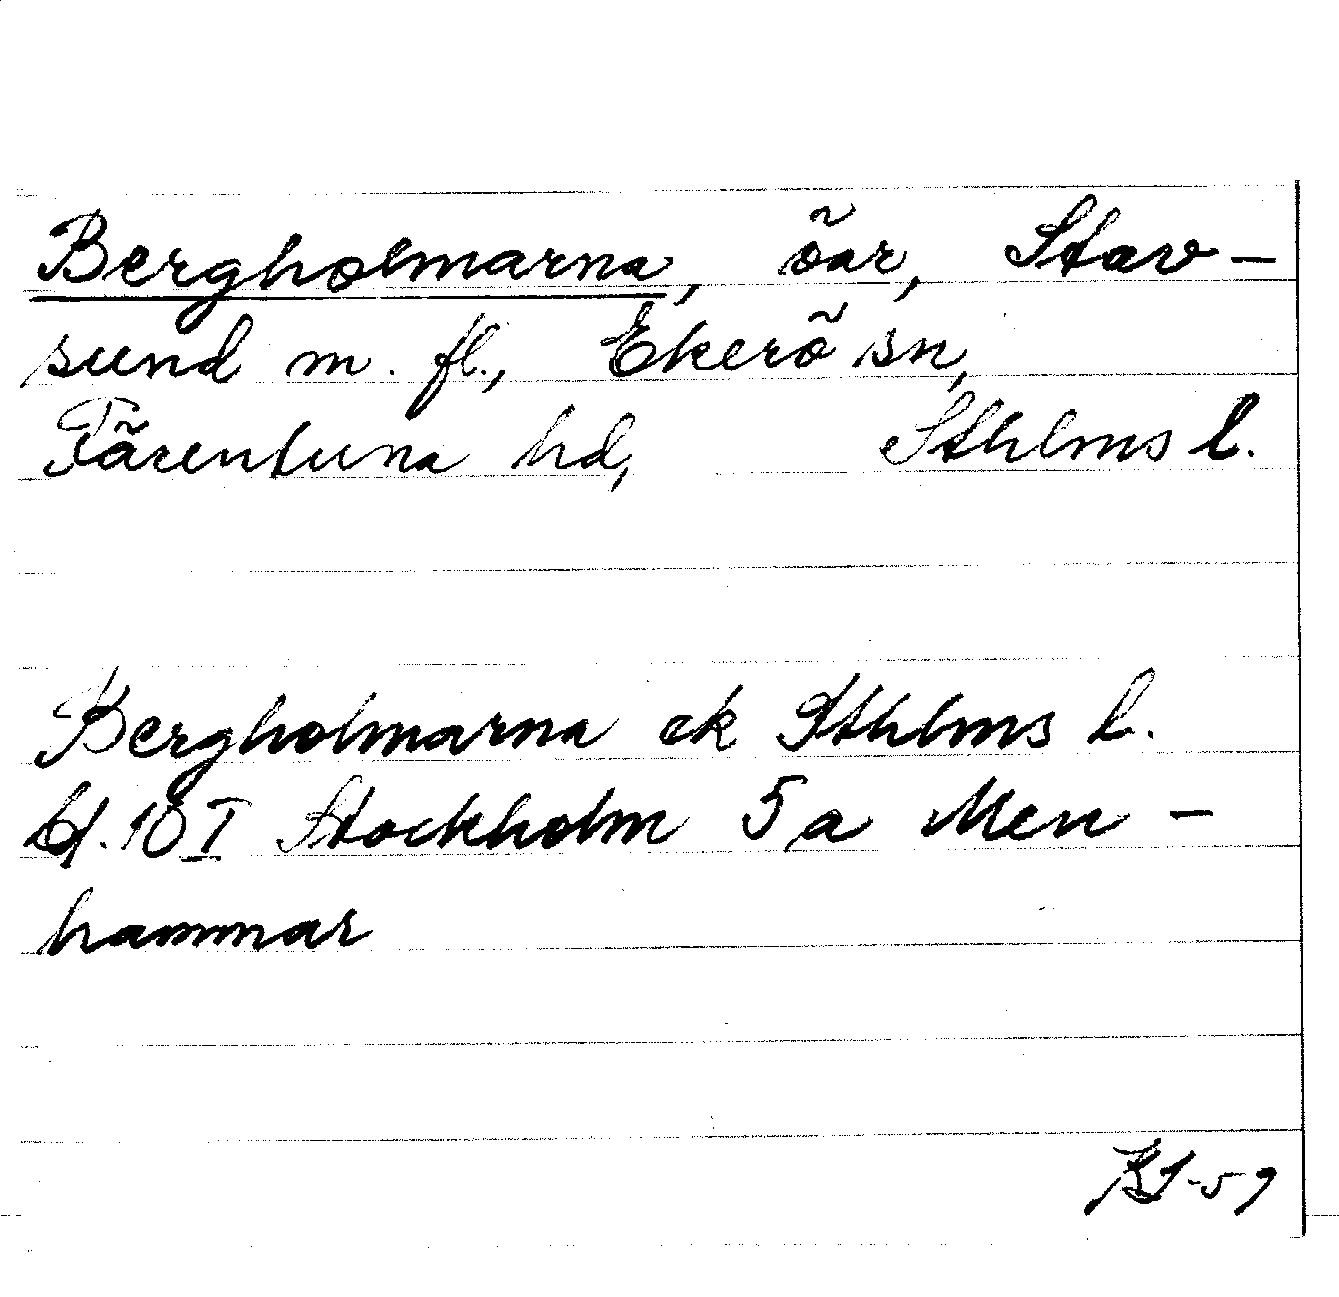 Bergholmarna, öar, Stav-
sund m. fl., Ekerö sn,
Färentuna hd, Sthlms l.
Bergholmarna ek Sthlms l.
bl. 10 I Stockholm 5 a Men-
hammar
-59